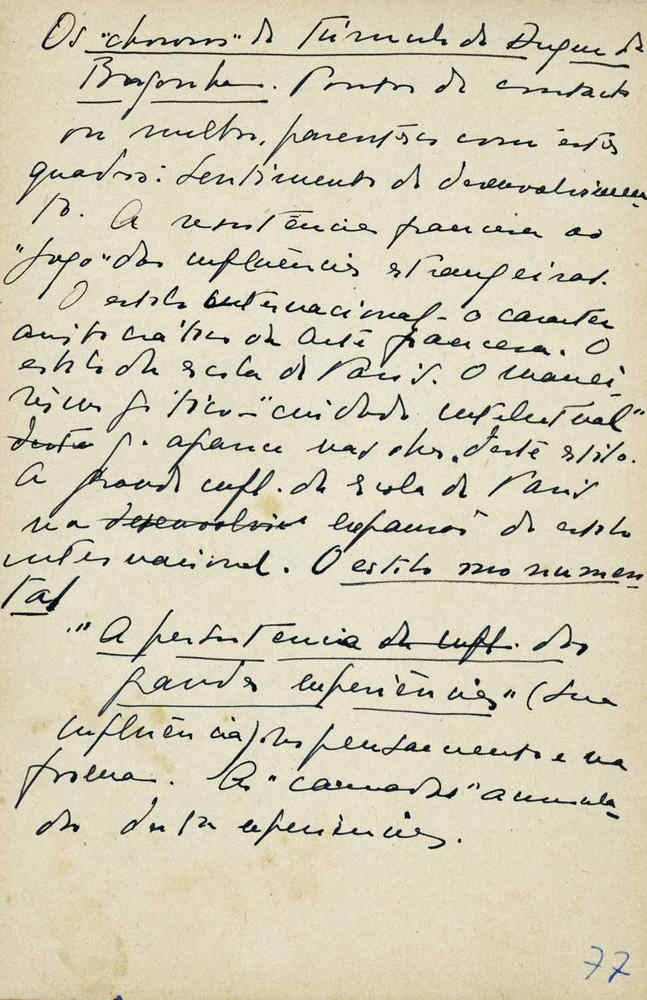 Os "chorosos" do Túmulo do Duque de
Borgonha. Pontos de contacto
ou melhor, parentesco com estes
quadros: Sentimento de desenvolvimen-
to. A resistência francesa ao
"jogo" das influências estrangeiras.
O estilo internacional - o caracter
aristocrático da arte francesa. O
estilo da escola de Paris. O manei-
rismo gótico - "cuidado intelectual"
q. aparece nas obras deste estilo.
A grande infl. da escola de Paris
na desenvolvi expansão do estilo
internacional. O estilo monumen-
tal
"A persistencia da infl. das
grandes experiências" (Sua
influência) no pensamento e na
forma. As "camadas" acumula-
das desta experiencias.
77